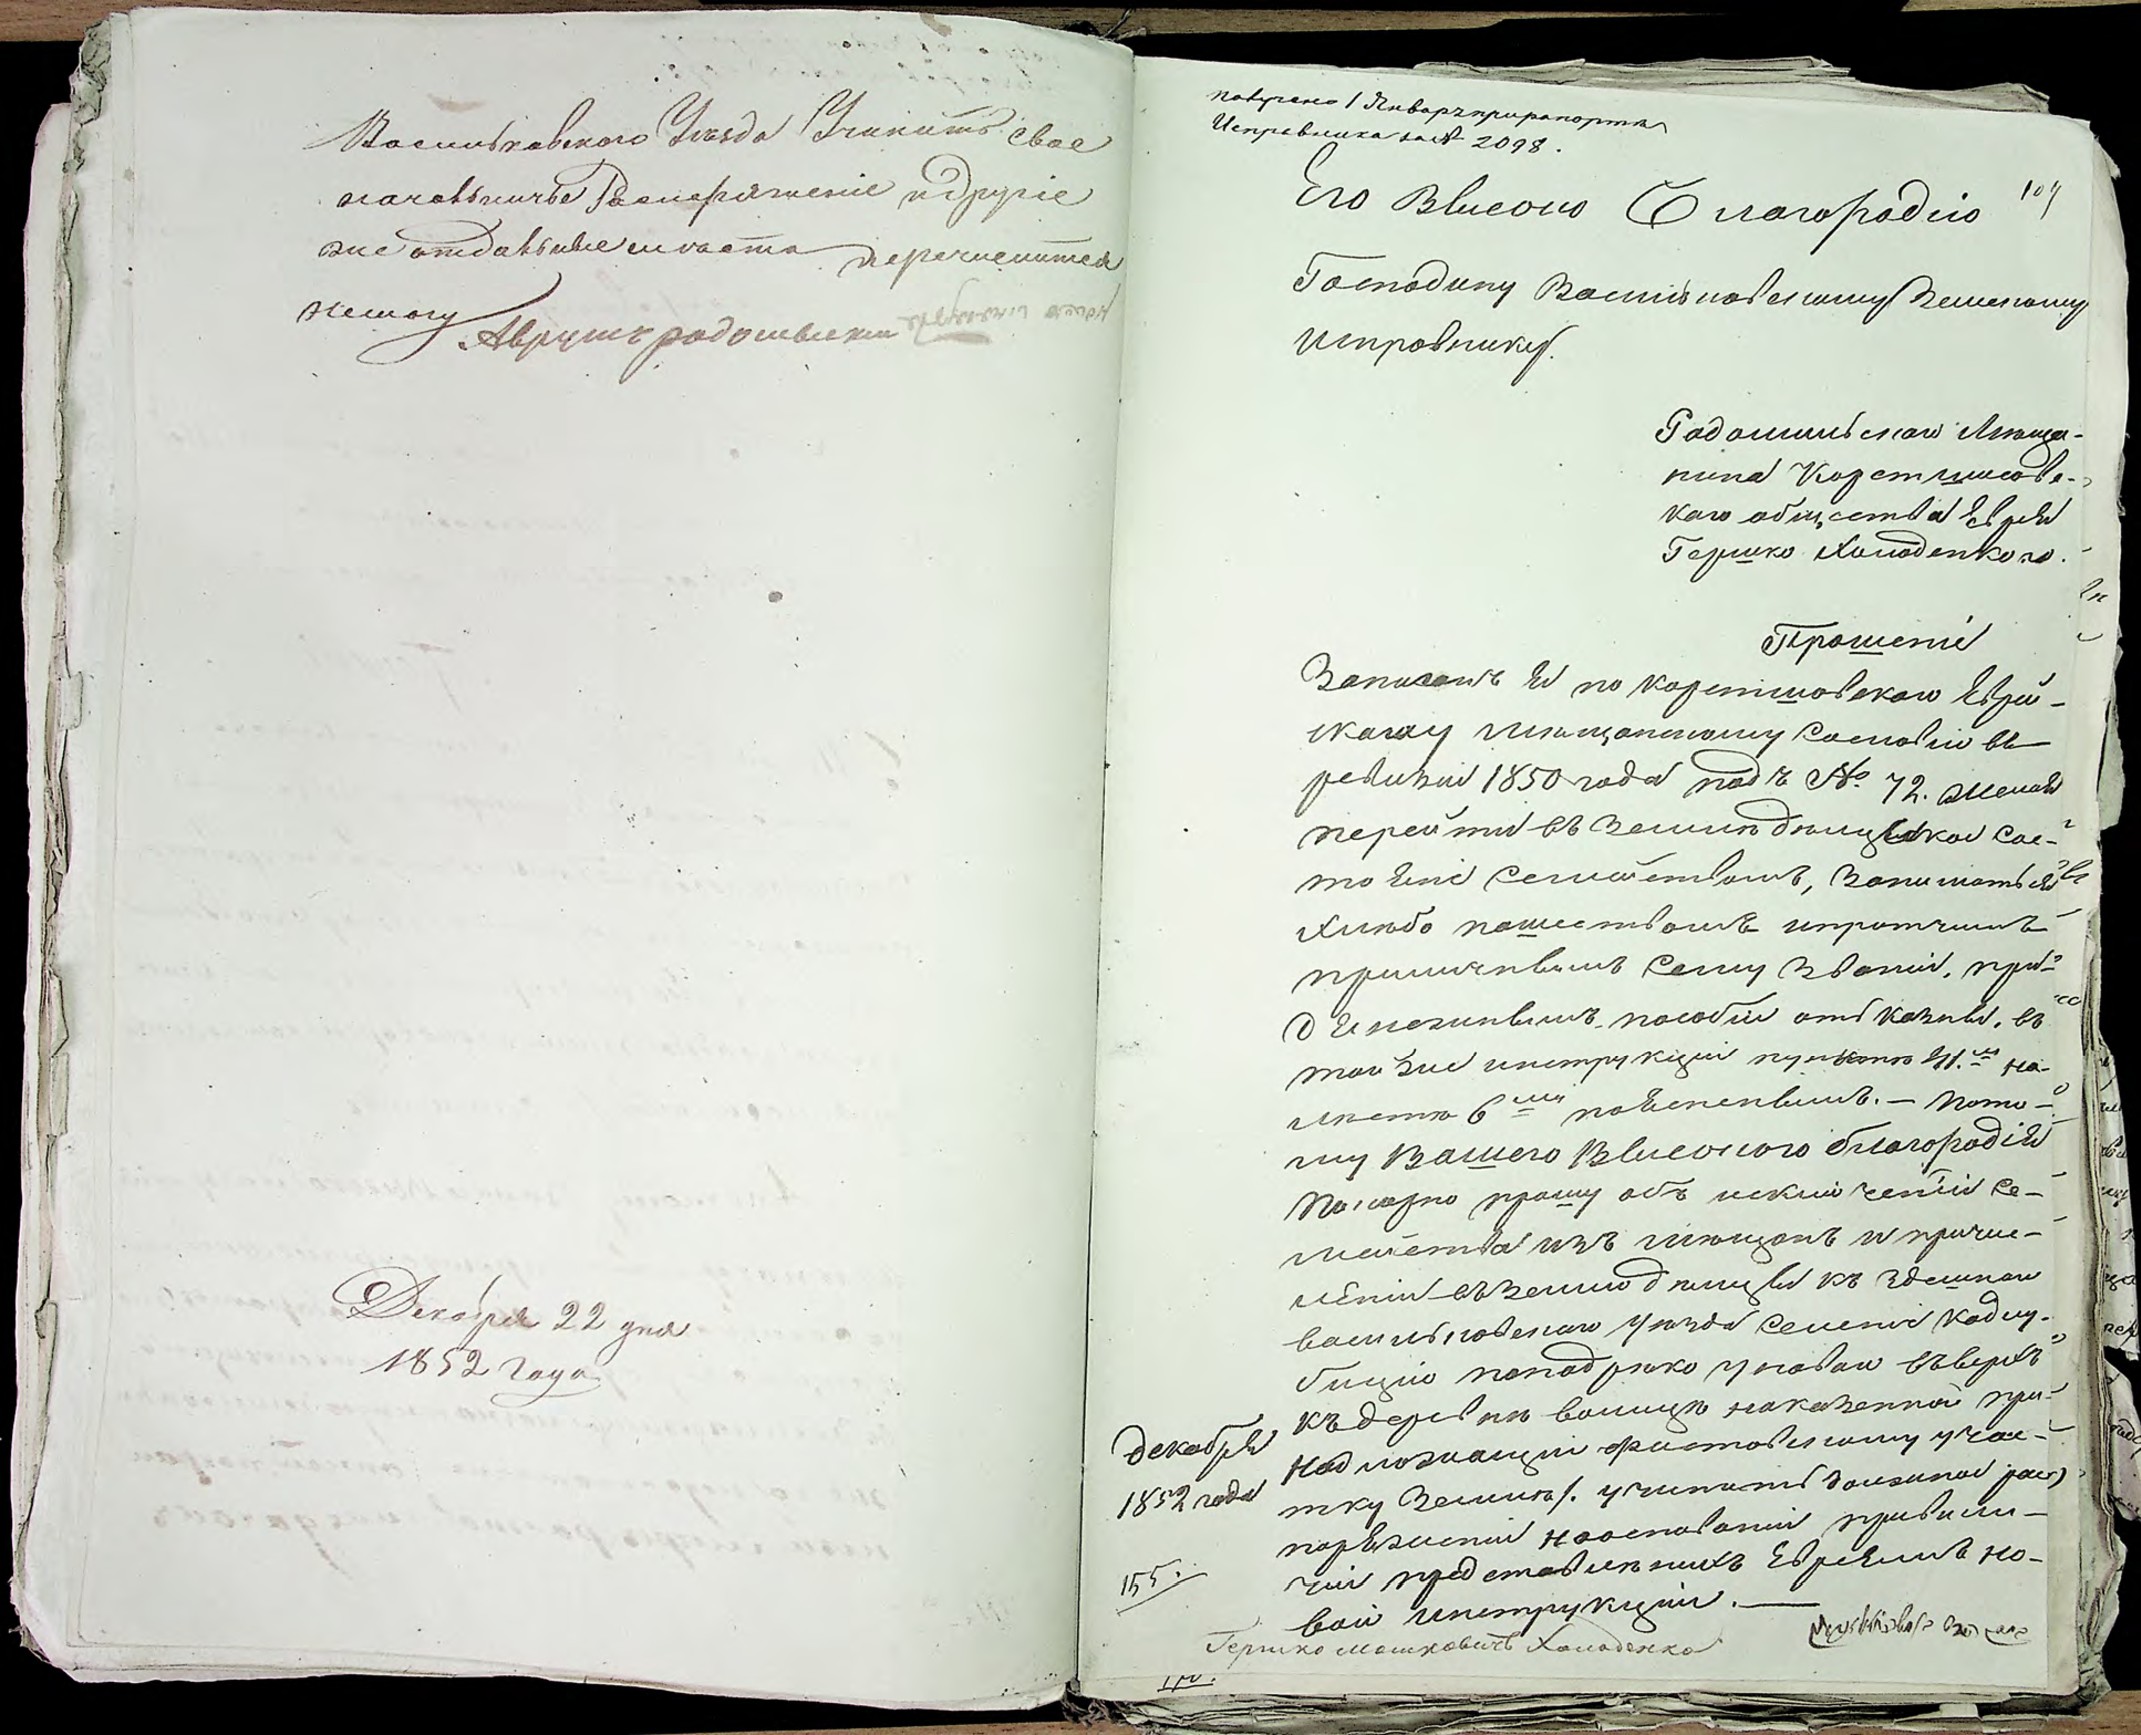 Васильковскаго Уезда Учинить свое
начальничье Распоряжение и другие
же отдальные места перечислится
немогу
Аврумъ радомыский
Декабря 22 дня
1852 Года
получено 1 Январь при рапорте
Исправника за № 2098.
109
Его Высоко Благородию
Господину Васильковскому Земскому
Исправнику.
Радомыльскаго Мѣща-
нина Коростышовс-
каго общества Еврея
Гершко Холоденкого.
Прошеніе
Записанъ я по Коростышовскаго Еврей-
скому мѣщанскому сословію въ
ревизіи 1850 года подъ №. 72. желая
перейти въ Земледѣлицское сос-
тояніе семействомъ, заниматься
хлѣбопашествомъ и протчимъ
приличнымъ сему званію. при
единожнымъ пособіи отъ казны. въ
той же инструкціи пункта 11.м на-
листа 6мъ поясненнымъ. — Пото-
му Вашего Высокого благородія
Покорно прошу объ исключеніи се-
мейства изъ мѣщанъ и причис-
леніи въ земледѣлцы къ здешнаго
васильковскаго уѣзда селеніи Кадлу-
бицию по надрѣко унавой въверхъ
къ деревни волице на казенной при-
надлежащии фастовскому учас-
тку Землю/. учинить должное рас-
поряженіи наоснованіи привили-
гіи представленнихъ Евреямъ но-
вой инструкціи. —
Декабря
1852 года
155.
Гершко Мошковичъ Холоденко